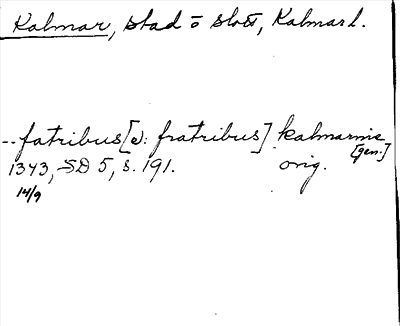 Kalmar, stad o slott, Kalmar l.
-- fatribus [ɔ: fratribus] kalmarnie [gen.]
1343, SD 5, s. 191. orig.
14/9